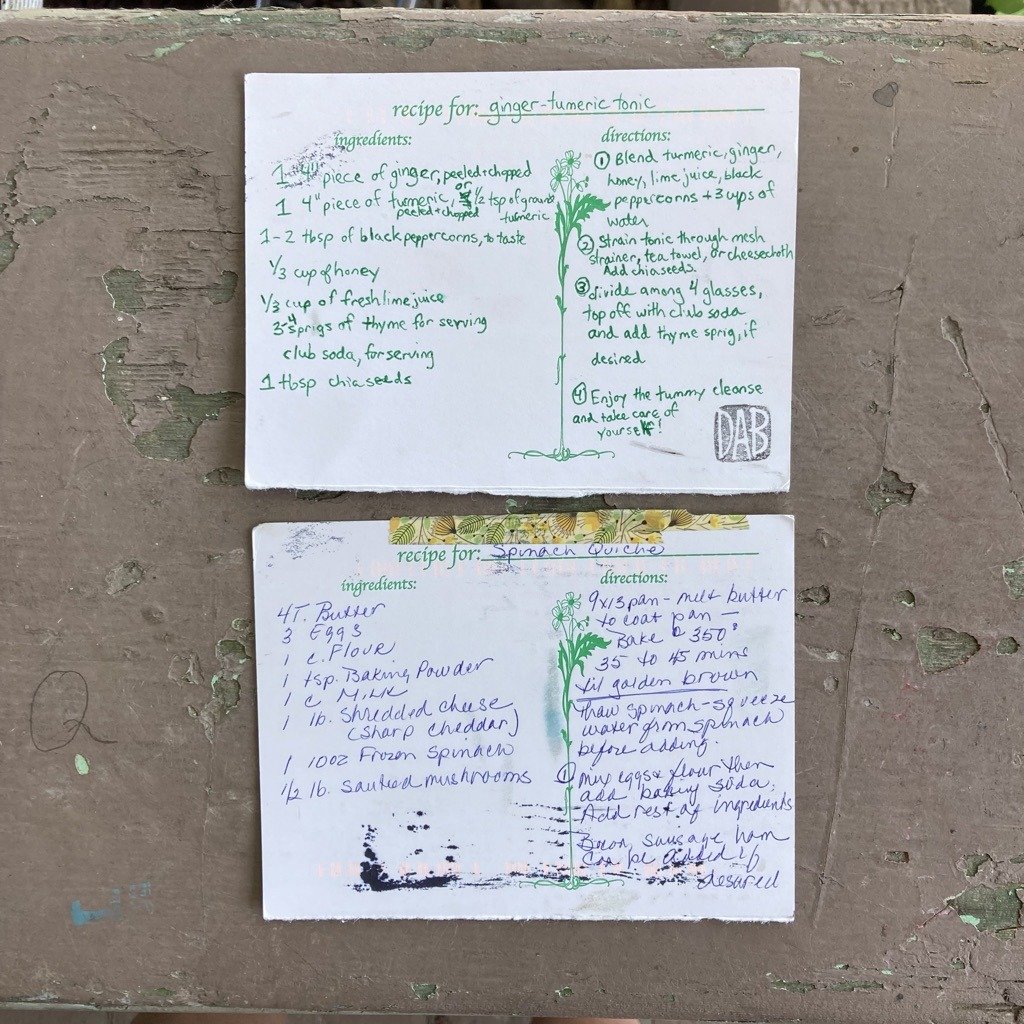 recipe for: ginger-tumeric tonic
ingredients:
1 4" piece of ginger, peeled + chopped
or
1 4" piece of tumeric, 1/2 tsp of ground
peeled + chopped turmeric
1-2 tbsp of black peppercorns, to taste
1/3 cup of honey
1/3 cup of fresh lime juice
3-4 sprigs of thyme for serving
club soda, for serving
1 tbsp chia seeds
directions:
① Blend turmeric, ginger,
honey, lime juice, black
peppercorns + 3 cups of
water
② Strain tonic through mesh
strainer, tea towel, or cheesecloth
Add chia seeds
③ divide among 4 glasses,
top off with club soda
and add thyme sprig, if
desired
④ Enjoy the tummy cleanse
and take care of
yourself!
DAB
recipe for: Spinach Quiche
ingredients:
4T. Butter
3 Eggs
1 c. Flour
1 tsp. Baking Powder
1 c Milk
1 lb. Shredded cheese
(Sharp cheddar)
1 10oz Frozen Spinach
1/2 lb. sauteed mushrooms
directions:
9x13 pan - melt butter
to coat pan -
Bake @ 350°
35 to 45 mins
til golden brown
thaw spinach - squeeze
water from spinach
before adding.
① mix eggs & flour then
add baking soda.
Add rest of ingredients
Bacon, sausage, ham
can be added if
desired
Q